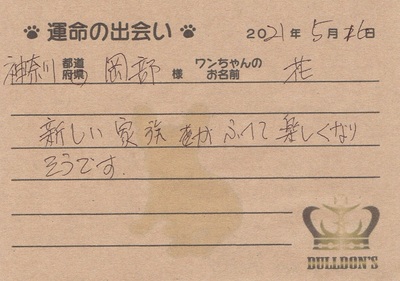 運命の出会い 2021年5月16日
神奈川 都道府県 岡部 様 ワンちゃんのお名前 花
新しい家族がふえて楽しくなり
そうです.
BULLDON'S